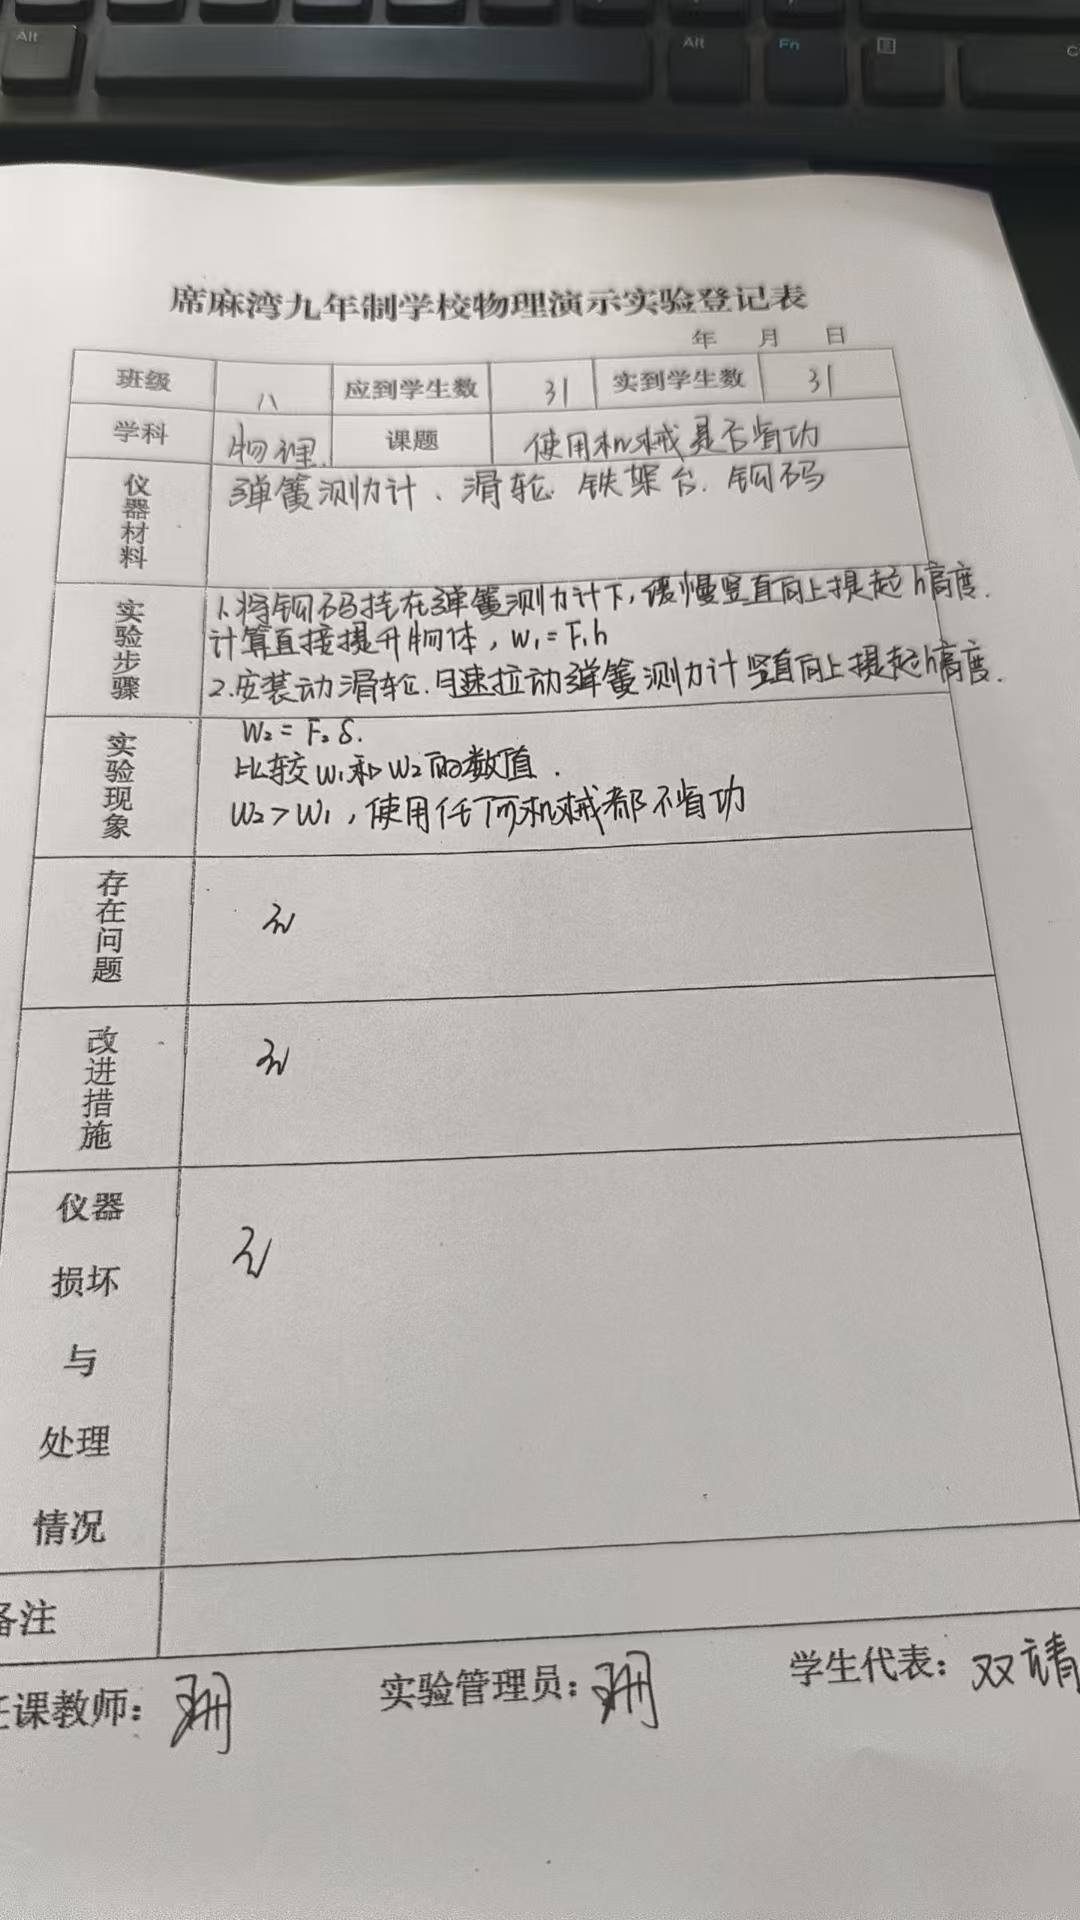 Alt
Alt Fn
席麻湾九年制学校物理演示实验登记表
年 月 日
班级 八 应到学生数 31 实到学生数 31
学科 物理 课题 使用机械是否省功
仪器材料 弹簧测力计、滑轮、铁架台、钩码
实验步骤 1.将钩码挂在弹簧测力计下,缓慢竖直向上提起h高度.
计算直接提升物体,W₁=F₁h
2.安装动滑轮.匀速拉动弹簧测力计竖直向上提起h高度.
W₂=F₂S.
实验现象 比较W₁和W₂的数值.
W₂>W₁,使用任何机械都不省功
存在问题 无
改进措施 无
仪器 无
损坏
与
处理
情况
备注
任课教师: 实验管理员: 学生代表:双靖